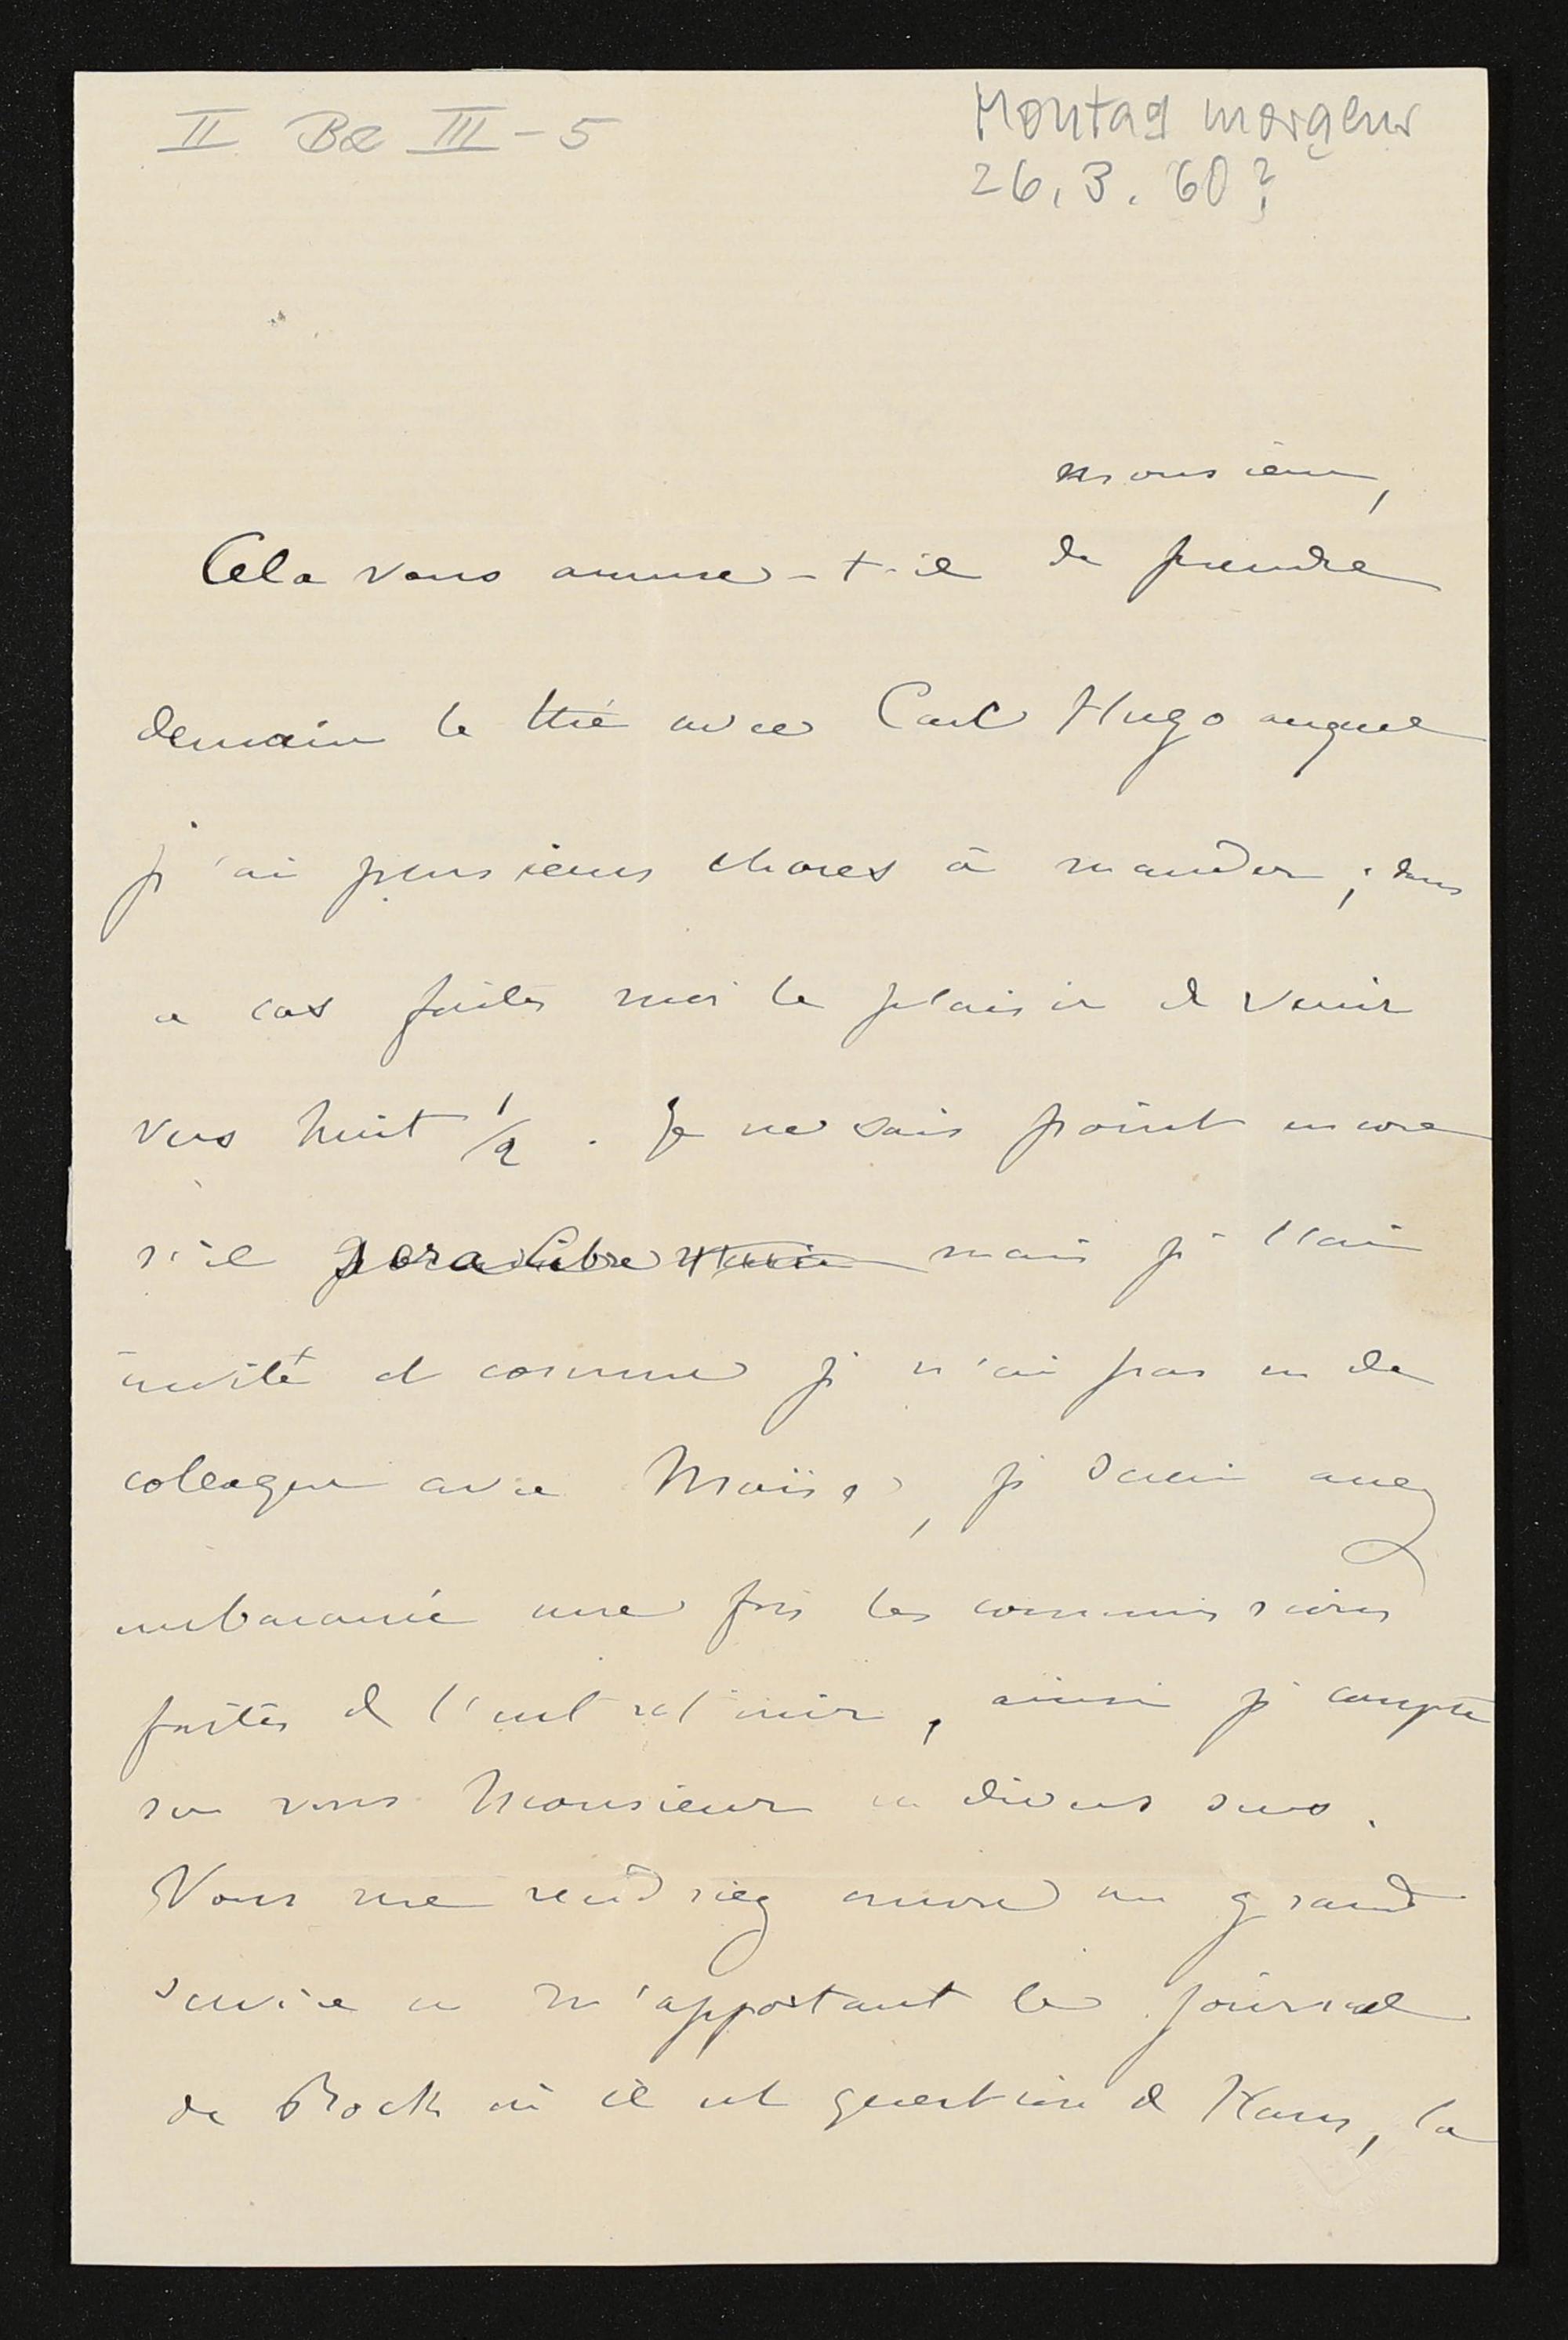 II Bª III - 5
Montag morgens
26. 3. 60?
Monsieur,
Cela vous amuse-t-il de prendre
demain le thé avec Carl Hugo auquel
j'ai plusieurs choses à mander ; dans
ce cas faites moi le plaisir de venir
vers huit 1/2. Je ne sais point encore
s'il sera libre mais je l'ai
invité et comme je n'ai pas eu de
collègue avec Moïse, je serai assez
embarassée une fois les commissions
faites de l'entretenir, ainsi je compte
sur vous Monsieur en divers sens.
Vous me rendriez encore un grand
service en m'apportant le journal
de Bock où il est question de Hans, la